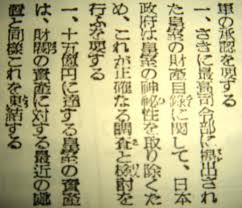 軍の承認を要する
一、さきに最高司令部に提出され
た皇室の財産目録に関して、日本
政府は皇室の神秘性を取り除くた
め、これが正確なる調査と検討を
行ふを要する
一、十五億円に達する皇室の資産
は、財閥の資産に対する最近の処
置と同様これを凍結する